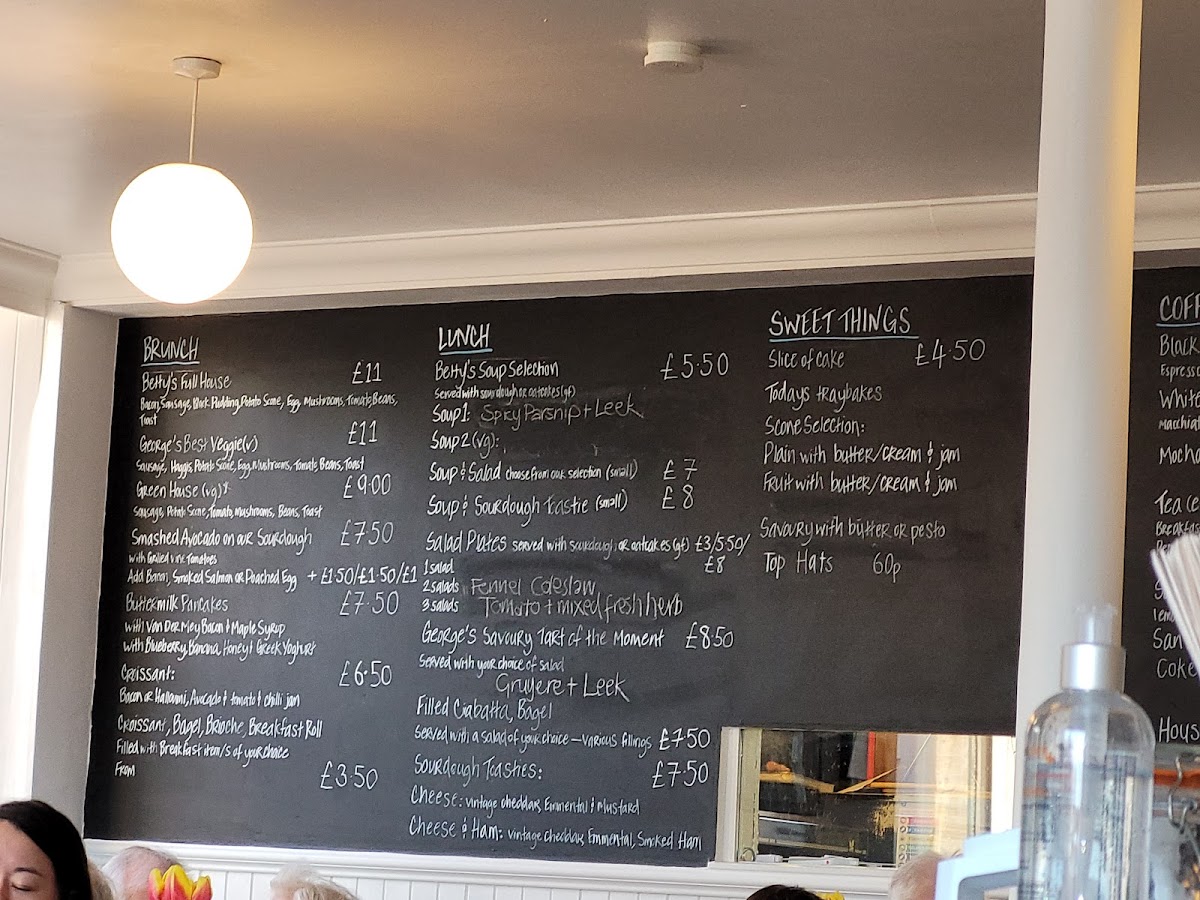 BRUNCH
Betty's Full House £11
Bacon, Sausage, Black Pudding, Potato Scone, Egg, Mushrooms, Tomato, Beans,
Toast
George's Best Veggie (v) £11
Sausage, Haggis, Potato Scone, Egg, Mushrooms, Tomato, Beans, Toast
Green House (vg) £9.00
Sausage, Potato Scone, Tomato, mushrooms, Beans, Toast
Smashed Avocado on our Sourdough £7.50
with Grilled Vine Tomatoes
Add Bacon, Smoked Salmon or Poached Egg + £1.50/£1.50/£1
Buttermilk Pancakes £7.50
with Van Der Mey Bacon & Maple Syrup
with Blueberry, Banana, Honey & Greek Yoghurt
Croissant: £6.50
Bacon or Halloumi, Avocado & tomato & chilli jam
Croissant, Bagel, Brioche, Breakfast Roll
Filled with Breakfast item/s of your choice
From £3.50
LUNCH
Betty's Soup Selection £5.50
Served with sourdough or oatcakes (gf)
Soup 1: Spicy Parsnip + Leek
Soup 2 (vg):
Soup & Salad choose from our selection (small) £7
Soup & Sourdough Toastie (small) £8
Salad Plates served with sourdough or oatcakes (gf) £3/5.50/
£8
1 salad
2 salads Fennel Coleslaw
3 salads Tomato + mixed fresh herb
George's Savoury Tart of the Moment £8.50
Served with your choice of salad
Gruyere + Leek
Filled Ciabatta, Bagel
Served with a salad of your choice - various fillings £7.50
Sourdough Toasties: £7.50
Cheese: vintage cheddar, Emmental & mustard
Cheese & Ham: vintage cheddar, Emmental, Smoked Ham
SWEET THINGS
Slice of cake £4.50
Todays traybakes
Scone Selection:
Plain with butter/cream & jam
Fruit with butter/cream & jam
Savoury with butter or pesto
Top Hats 60p
COFF
Black
Espresso
White
Macchiat
Mocha
Tea (e
Breakfas
Lem
San
Coke
Hous